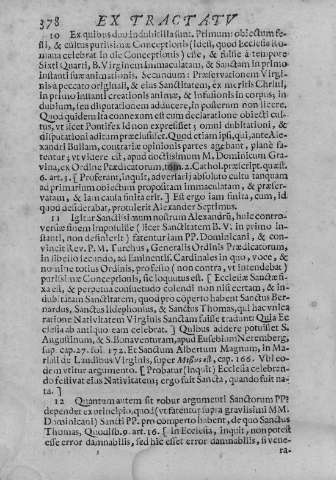 378 EX TRACTATV
10 Ex quibus duo indubitilia sunt. Primum: obiectum fe-
sti, & cultus purissimæ Conceptionis (idest, quod Ecclesia Ro-
mana celebrat in die Conceptionis) esse, & fuisse à tempore
Sixti Quarti, B. Virginem Immaculatam, & Sanctam in primo
instanti suæ animationis. Secundum: Præservationem Virgin-
is à peccato originali, & eius Sanctitatem, ex meritis Christi,
in primo Instanti creationis animæ, & infusionis in corpus, in
dubium, seu disputationem adducere, in posterum non licere.
Quod quidem ita connexum est cum declaratione obiecti cul-
tus, vt licet Pontifex id non expressisset; omni dubitationi, &
disputationi aditum præclusisset. Quod etiam ipsi, qui, ante Alex-
andri Bullam, contrariæ opinionis partes agebant, planè fa-
tentur; vt videre est, apud doctissimum M. Dominicum Gra-
vina, ex Ordine Prædicatorum, tom. 2. Cathol. præscript. quæst.
6. art. 3. [ Profectum, inquit, adversarij absoluto cultu tanquam
ad primarium obiectum propositam immaculatam, & præser-
vatam, & iam causa finita erit. ] Est ergo iam finita, cum, id
quod desiderabat, protulerit Alexander Septimus.
11 Igitur Sanctissimum nostrum Alexandrū, huic contro-
versiæ finem imposuisse (licet Sanctitatem B. V. in primo in-
stanti, non definierit) fatentur iam PP. Dominicani, & con-
vincit licet P. M. Turchus, Generalis Ordinis Prædicatorum,
in libello secundo, ad Eminentiss. Cardinales in quo, voce, &
nomine totius Ordinis, professo (non contra, vt intendebat)
purissimæ Conceptionis, sic loquutus est. [ Ecclesiæ Sanctæ fi-
xa est, & perpetua consuetudo colendi non nisi certam, & in-
dubitatam Sanctitatem, quod pro comperto habent Sanctus Ber-
nardus, Sanctus Ildephonius, & Sanctus Thomas, qui hac vnica
ratione Nativitatem Virginis Sanctam fuisse tradunt: Quia Ec
clesia ab antiquo eam celebrat. ] Quibus addere potuisset S.
Augustinum, & S. Bonaventuram, apud Eusebium Nieremberg,
sup. cap. 27. fol. 172. Et Sanctum Albertum Magnum, in Ma-
riali de Laudibus Virginis, super Missus est, cap. 166. Vbi eo-
dem vtitur argumento. [ Probatur (inquit) Ecclesia celebran-
do festivat eius Nativitatem; ergo fuit Sancta, quando fuit na-
ta. ]
12 Quantum autem sit robur argumenti Sanctorum PP:
dependet ex principio, quod (vt fatentur supra gravissimi MM.
Dominicani) Sancti PP. pro comperto habent, de quo Sanctus
Thomas, Quodlib. 9. art. 16. [ In Ecclesia, inquit, non potest
esse error damnabilis, sed hic esset error damnabilis, si vene-
ra-